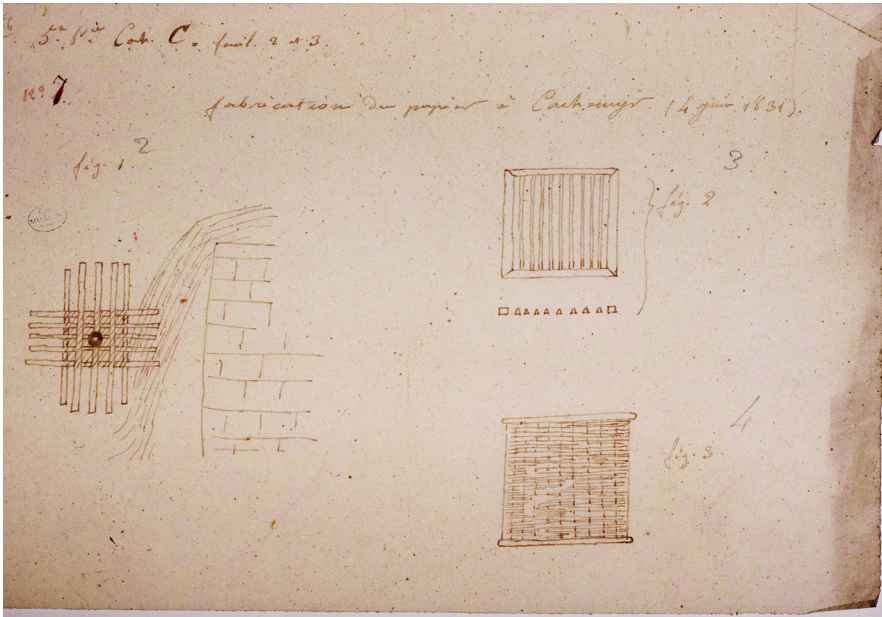 5ᵐᵉ Pⁱᵉ Cah. C. feuil. 2 et 3.
Nº 7
fabrication du papier à Cachemyr. (4 juin 1831).
fig. 1 2
3
fig. 2
4
fig. 3